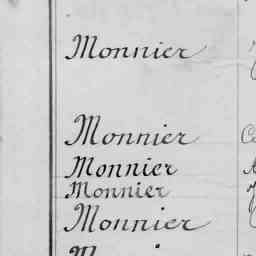 Monnier
Monnier
Monnier
Monnier
Monnier